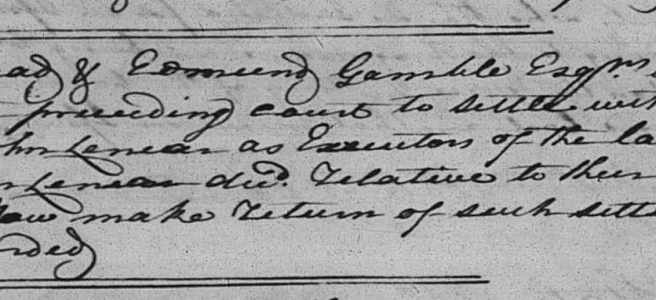 ad & Edmund Gamble Esqrs
preceeding court to settle with
hn Lenear as Executors of the la
Lenear decd. Relative to their
Now make Return of such settl
rded